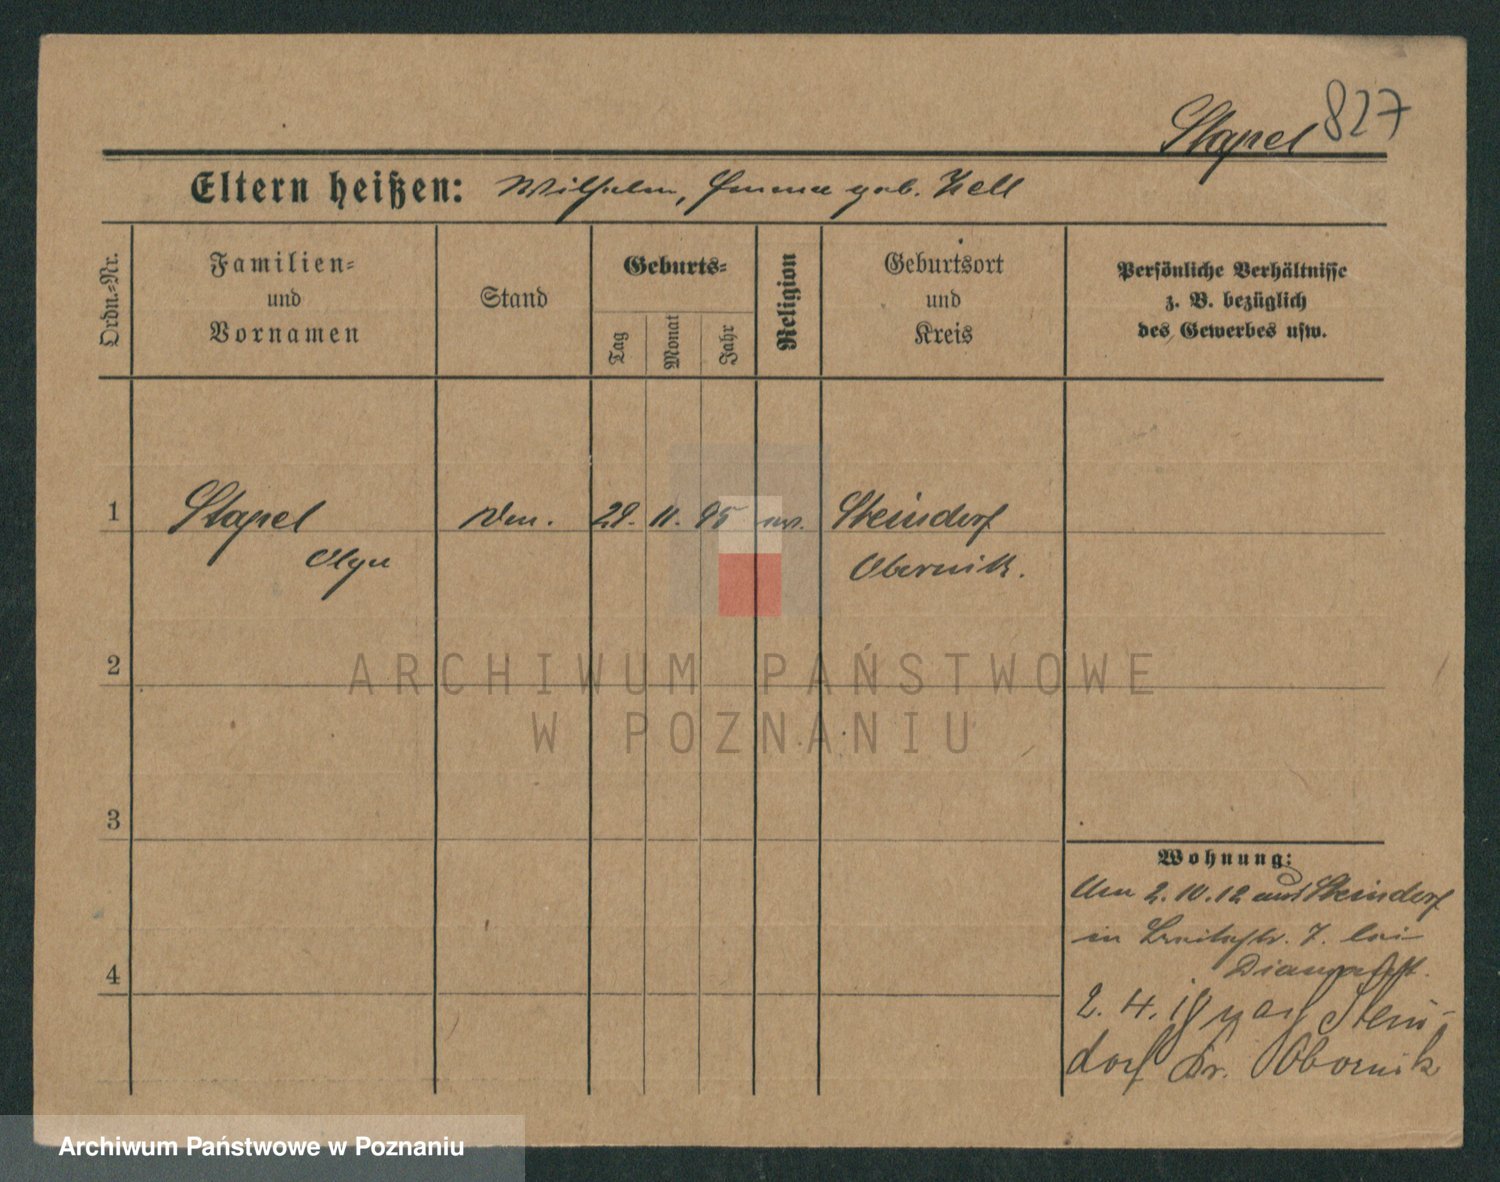 827
Stapel
Eltern heißen: Wilhelm, Emma geb. Zell
Ordn.-Nr.
Familien-
und
Vornamen
Stand
Geburts-
Tag
Monat
Jahr
Religion
Geburtsort
und
Kreis
Persönliche Verhältnisse
z. B. bezüglich
des Gewerbes usw.
1 Stapel 29. 11. 95 ev. Steindorf
Olga Obernik.
2
ARCHIWUM PAŃSTWOWE
W POZNANIU
3
Wohnung:
Am 2.10.12 aus Steindorf
in 7. bei
4
2. 4. 18 nach Stein-
dorf Kr. Obornik
Archiwum Państwowe w Poznaniu